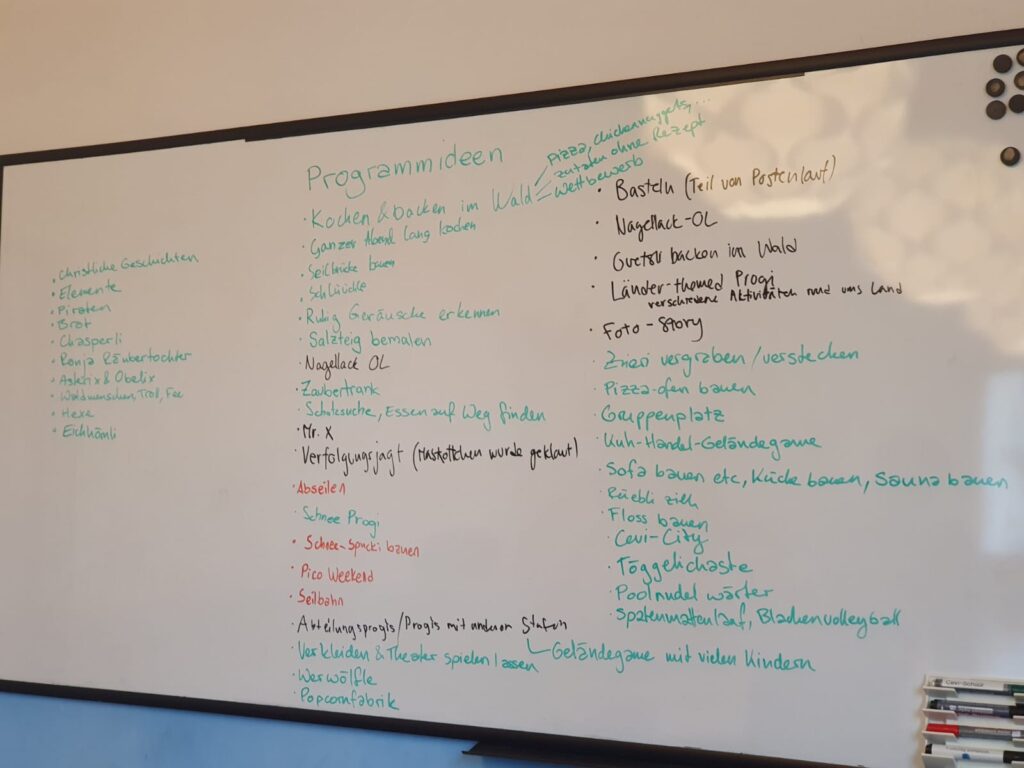 • Christliche Geschichten
• Elemente
• Piraten
• Brot
• Chasperli
• Ronja Räubertochter
• Asterix & Obelix
• Waldmenschen, Troll, Fee
• Hexe
• Eichhämli
Programmideen
• Kochen & backen im Wald
Pizza, Chickennuggets,...
zutaten ohne Rezept
Wettbewerb
• Ganzer Abend lang kochen
• Seilbrücke bauen
• Ruhig Geräusche erkennen
• Salzteig bemalen
• Nagellack OL
• Zaubertrank
• Schatzsuche, Essen auf Weg finden
• Mr. X
• Verfolgungsjagt (Maskottchen wurde geklaut)
• Abseilen
• Schnee Progi
• Schnee-Spucki bauen
• Pico Weekend
• Seilbahn
• Abteilungsprogis/Progis mit anderen Stufen
Geländegame mit vielen Kindern
• Verkleiden & Theater spielen lassen
• Werwölfle
• Popcornfabrik
• Basteln (Teil von Postenlauf)
• Nagellack-OL
• Guetsli backen im Wald
• Länder-themed Progi
verschiedene Aktivitäten rund ums Land
• Foto-Story
• Znüni vergraben/verstecken
• Pizza-ofen bauen
• Gruppenplatz
• Kuh-Handel-Geländegame
• Sofa bauen etc, Küche bauen, Sauna bauen
• Rüebli zieh
• Floss bauen
• Cevi-City
• Töggelichaste
• Poolnudel wärter
• Spatenmattenlauf, Blachenvolleyball